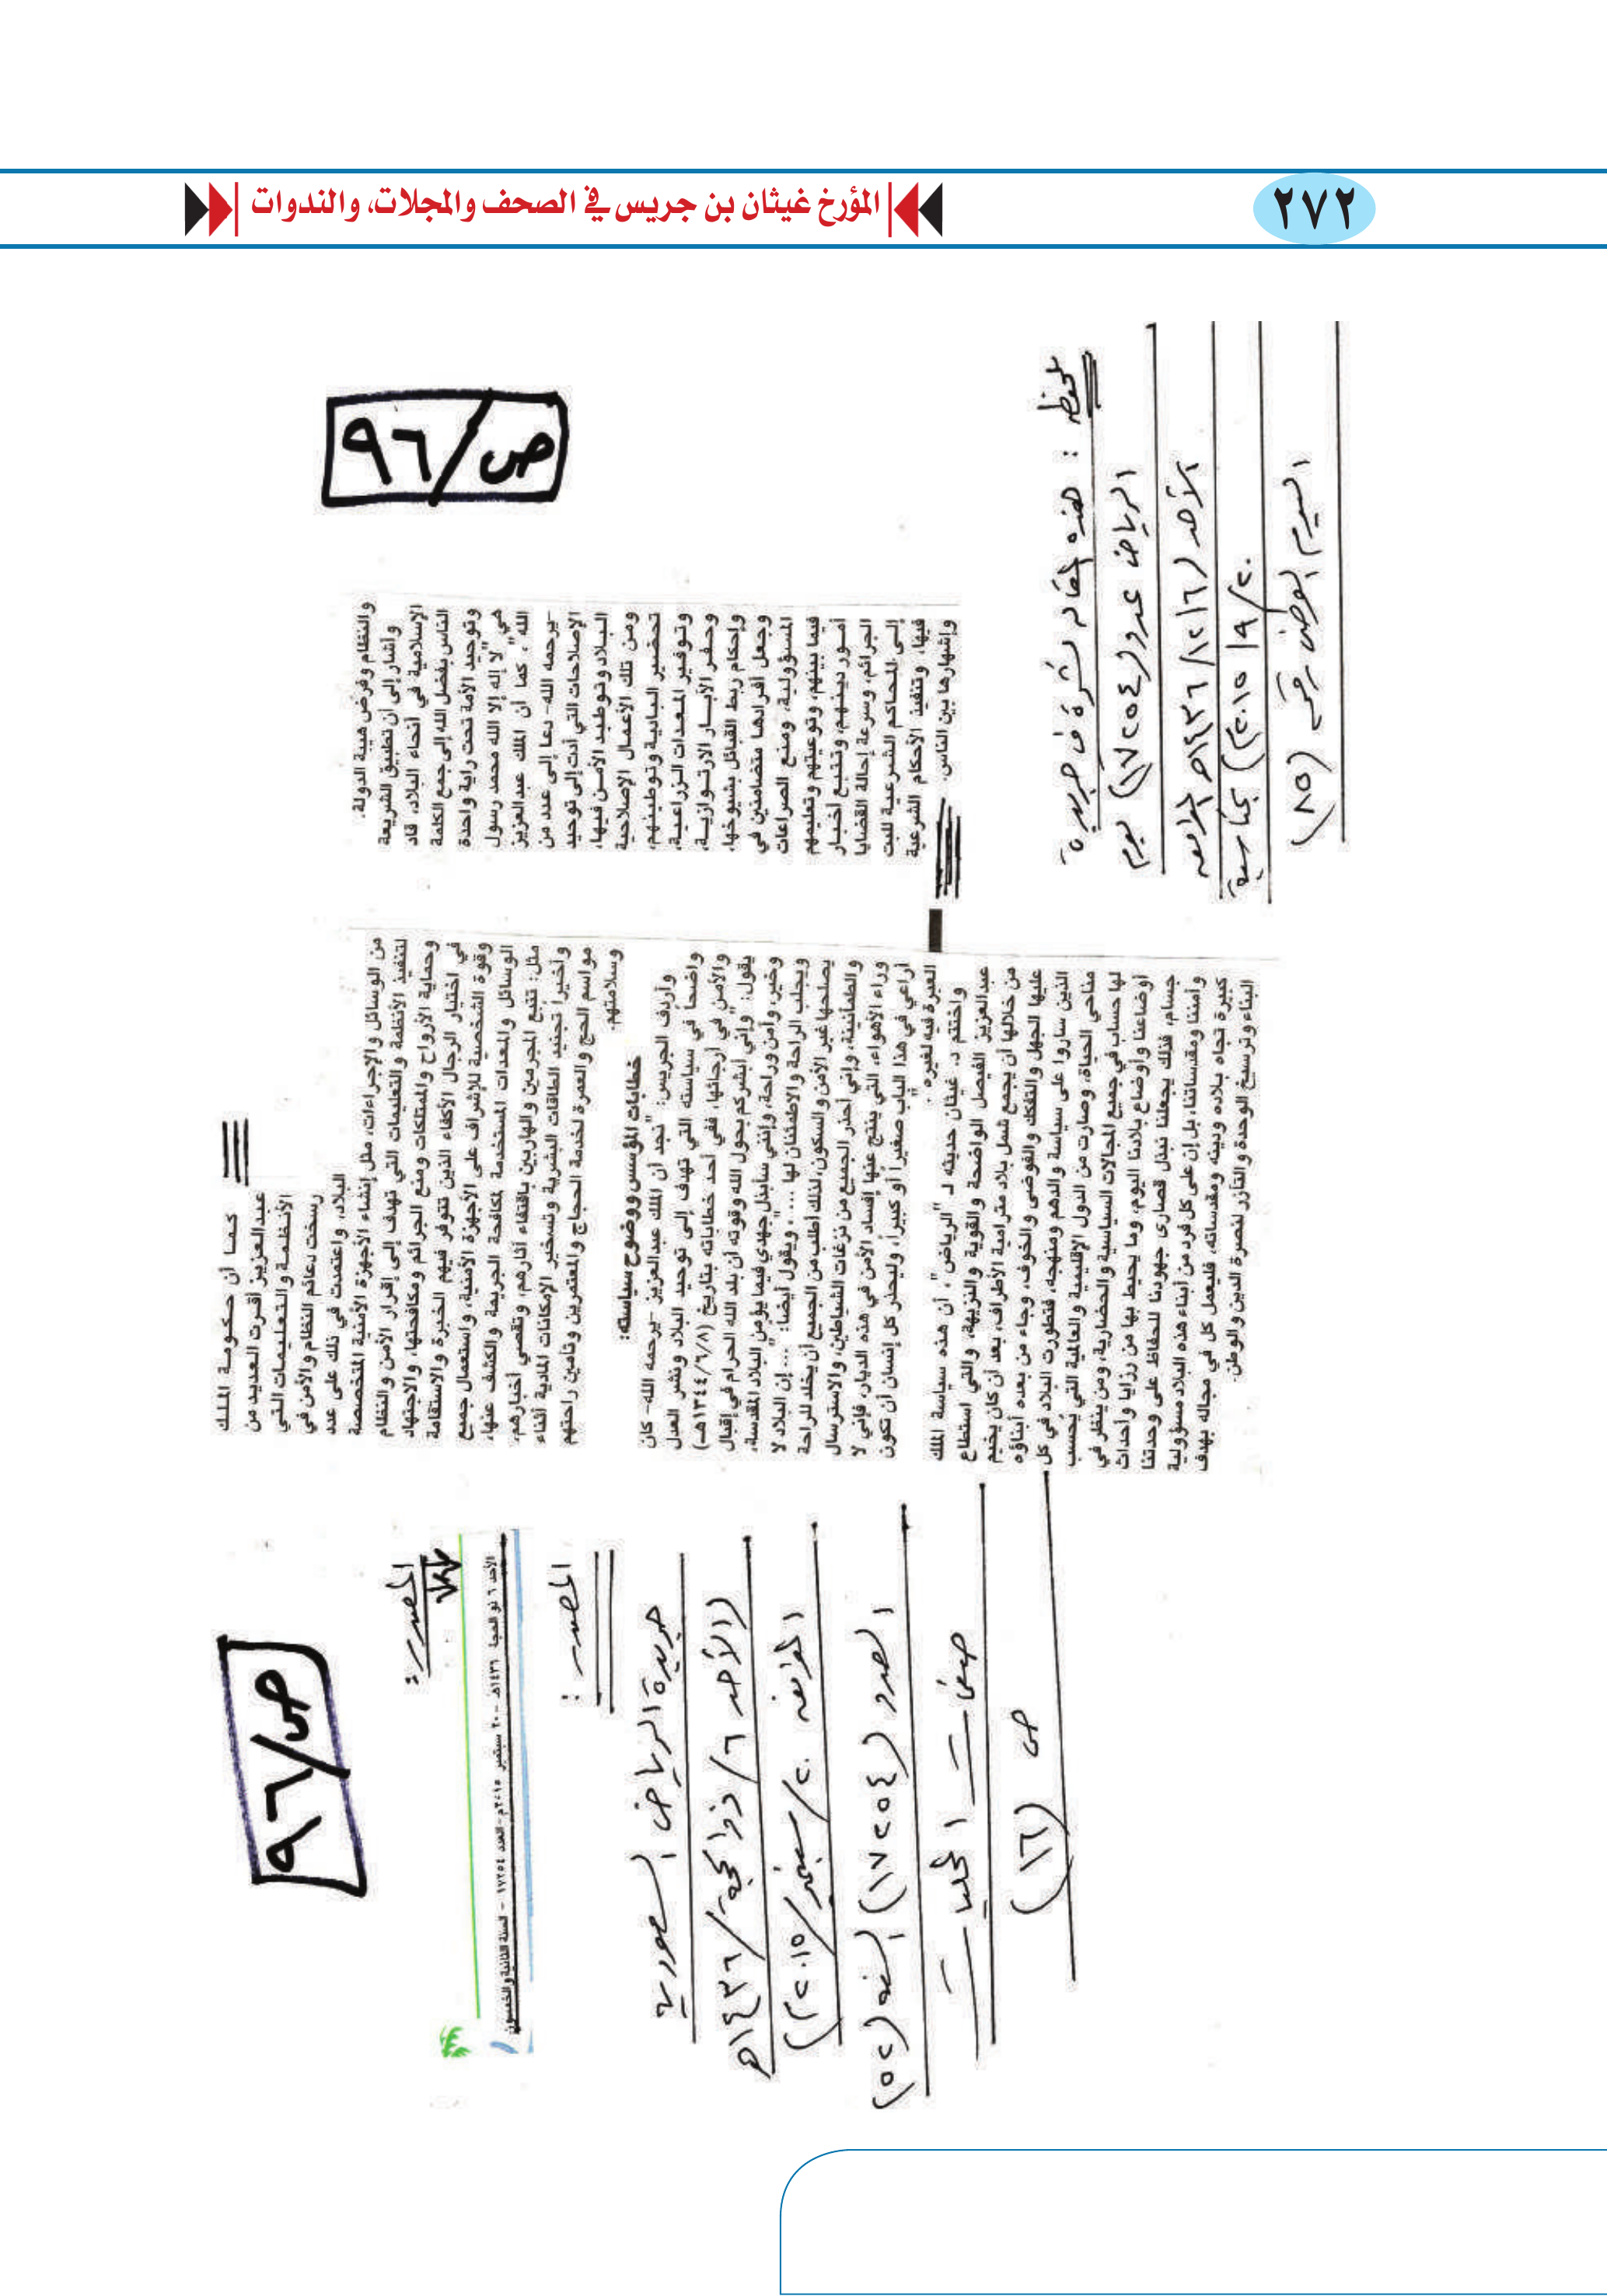 ٢٧٢
المؤرخ غيثان بن جريس في الصحف والمجلات، والندوات
ص/٩٦
والنظام وفرض هيبة الدولة.
وأشار إلى أن تطبيق الشريعة
الإسلامية في أنحاء البلاد، قاد
الناس بفضل الله إلى جمع الكلمة
وتوحيد الأمة تحت راية واحدة
هي "لا إله إلا الله محمد رسول
الله"، كما أن الملك عبدالعزيز
-يرحمه الله- دعا إلى عدد من
الإصلاحات التي أدت إلى توحيد
البلاد وتوطيد الأمن فيها،
ومن تلك الأعمال الإصلاحية
تحضير البادية وتوطينهم،
وتوفير المعدات الزراعية،
وحفر الآبار الارتوازية،
وإحكام ربط القبائل بشيوخها،
وجعل أفرادها متضامنين في
المسؤولية، ومنع الصراعات
فيما بينهم، وتوعيتهم وتعليمهم
أمور دينهم، وتتبع أخبار
الجرائم، وسرعة إحالة القضايا
إلى المحاكم الشرعية للبت
فيها، وتنفيذ الأحكام الشرعية
وإشهارها بين الناس.
ملحوظة : هذه المقالة نشرة في جريدة
الرياض عدد (١٧٢٥٤) يوم
الأحد (٦/١٢/١٤٣٦هـ الموافق
٢٠/٩/٢٠١٥م) بمناسبة
اليوم الوطني رقم (٨٥)
كما أن حكومة الملك
عبدالعزيز أقرت العديد من
الأنظمة والتعليمات التي
رسخت دعائم النظام والأمن في
البلاد، واعتمدت في ذلك على عدد
من الوسائل والإجراءات، مثل إنشاء الأجهزة الأمنية المتخصصة
لتنفيذ الأنظمة والتعليمات التي تهدف إلى إقرار الأمن والنظام
وحماية الأرواح والممتلكات ومنع الجرائم ومكافحتها، والاجتهاد
في اختيار الرجال الأكفاء الذين تتوفر فيهم الخبرة والاستقامة
وقوة الشخصية للإشراف على الأجهزة الأمنية، واستعمال جميع
الوسائل والمعدات المستخدمة لمكافحة الجريمة والكشف عنها،
مثل: تتبع المجرمين والهاربين باقتفاء آثارهم، وتقصي أخبارهم،
وأخيراً تجنيد الطاقات البشرية وتسخير الإمكانات المادية أثناء
مواسم الحج والعمرة لخدمة الحجاج والمعتمرين وتأمين راحتهم
وسلامتهم.
خطابات المؤسس ووضوح سياسته:
وأردف الجريس: "نجد أن الملك عبدالعزيز -يرحمه الله- كان
واضحاً في سياسته التي تهدف إلى توحيد البلاد ونشر العدل
والأمن في أرجائها، ففي أحد خطاباته بتاريخ (١٣٤٤/٦/٨هـ)
يقول: "وإني أبشركم بحول الله وقوته أن بلد الله الحرام في إقبال
وخير، وأمن وراحة، وإنني سأبذل جهدي فيما يؤمن البلاد المقدسة،
ويجلب الراحة والاطمئنان لها ...."، ويقول أيضاً: "... إن البلاد لا
يصلحها غير الأمن والسكون، لذلك أطلب من الجميع أن يخلد للراحة
والطمأنينة، وإني أحذر الجميع من نزغات الشياطين، والاسترسال
وراء الأهواء، التي ينتج عنها إفساد الأمن في هذه الديار، فإني لا
أراعي في هذا الباب صغيراً أو كبيراً، وليحذر كل إنسان أن تكون
العبرة فيه لغيره".
واختتم د. غيثان حديثه لـ "الرياض"، أن هذه سياسة الملك
عبدالعزيز الفيصل الواضحة والقوية والنزيهة، والتي استطاع
من خلالها أن يجمع شمل بلاد مترامية الأطراف، بعد أن كان يخيم
عليها الجهل والتفكك والفوضى والخوف، وجاء من بعده أبناؤه
الذين ساروا على سياسة والدهم ومنهجه، فتطورت البلاد في كل
مناحي الحياة، وصارت من الدول الإقليمية والعالمية التي يُحسب
لها حساب في جميع المجالات السياسية والحضارية، ومن ينظر في
أوضاعنا وأوضاع بلادنا اليوم، وما يحيط بها من رزايا وأحداث
جسام، فذلك يجعلنا نبذل قصارى جهودنا للحفاظ على وحدتنا
وأمننا ومقدساتنا، بل إن على كل فرد من أبناء هذه البلاد مسؤولية
كبيرة تجاه بلاده وبيته ومقدساته، فليعمل كل في مجاله بهدف
البناء وترسيخ الوحدة والتآزر لنصرة الدين والوطن.
ص/٩٦
المصدر:
الأحد ٦ ذو الحجة ١٤٣٦هـ - ٢٠ سبتمبر ٢٠١٥م - العدد ١٧٢٥٤ - السنة الثانية والخمسون
المصدر :
جريدة الرياض السعودية
(الأحد ٦/ذو الحجة/١٤٣٦هـ
الموافق ٢٠/سبتمبر/٢٠١٥م)
العدد (١٧٢٥٤) السنة (٥٢)
صفحات المحليات
ص (١٦)